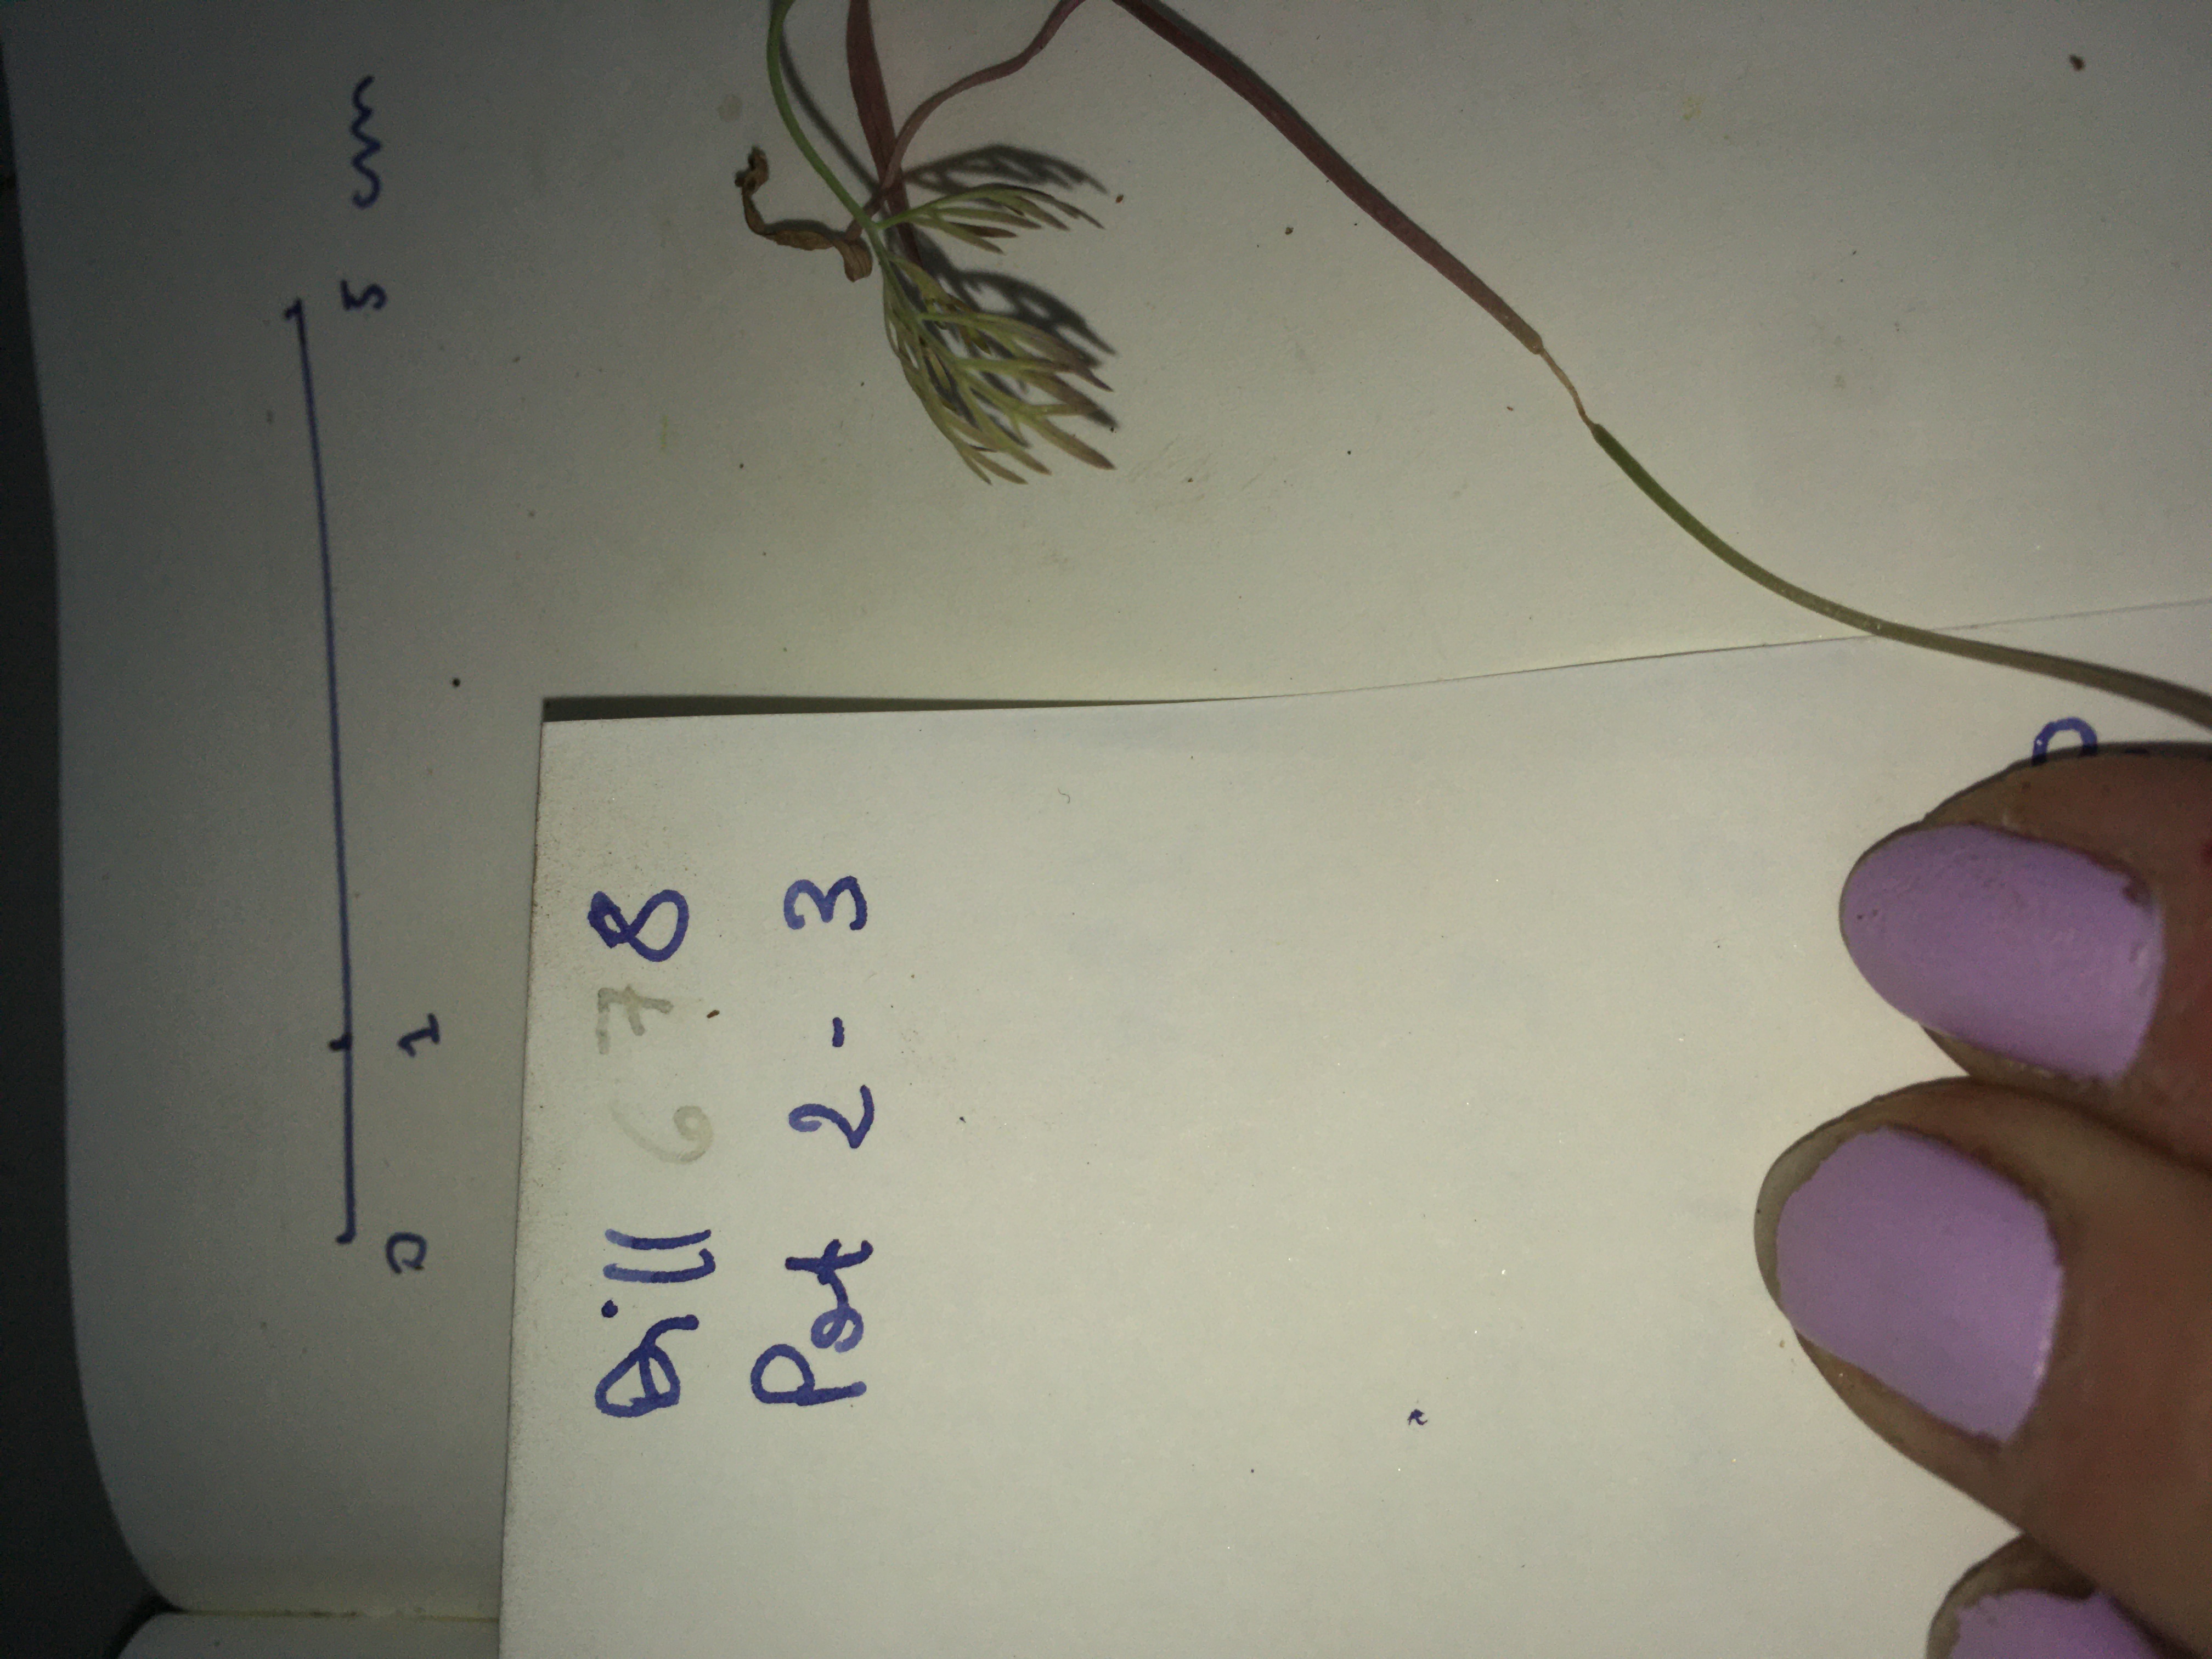 0 1 5 cm
Dill 6 7 8
Pot 2 - 3